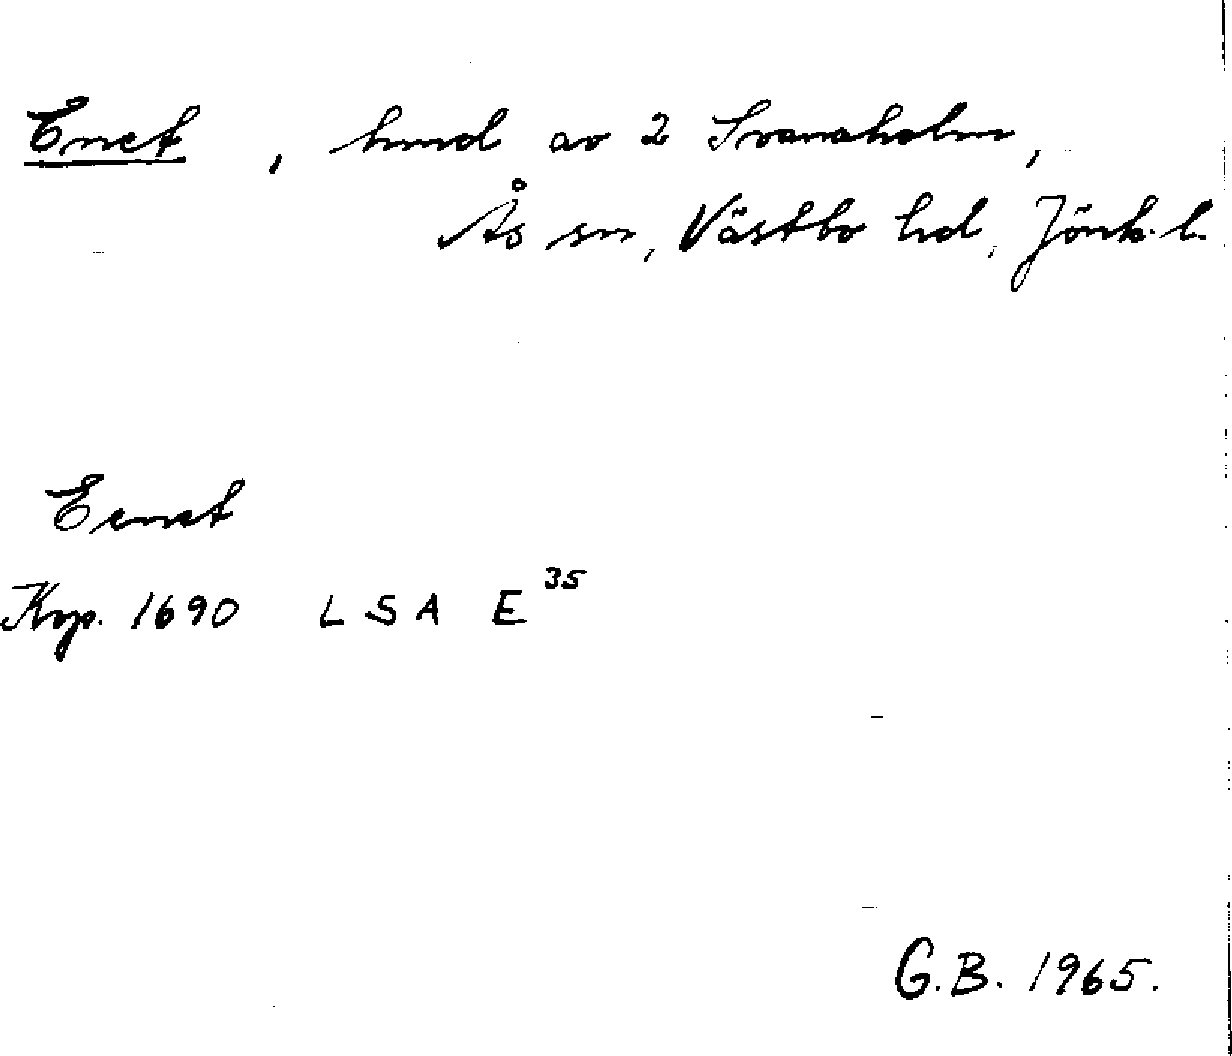 Enet, hmd av 2 Svanaholm,
Ås sn, Västbo hd, Jönk. l.
Eenet
Krp. 1690 LSA E 35
G.B. 1965.